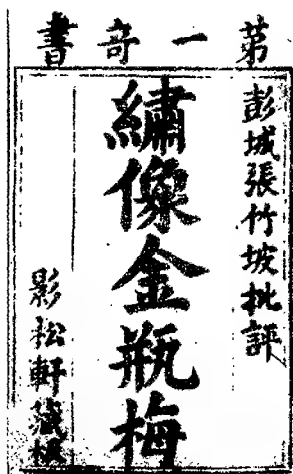 第一奇書
彭城張竹坡批評
繡像金瓶梅
影松軒藏板